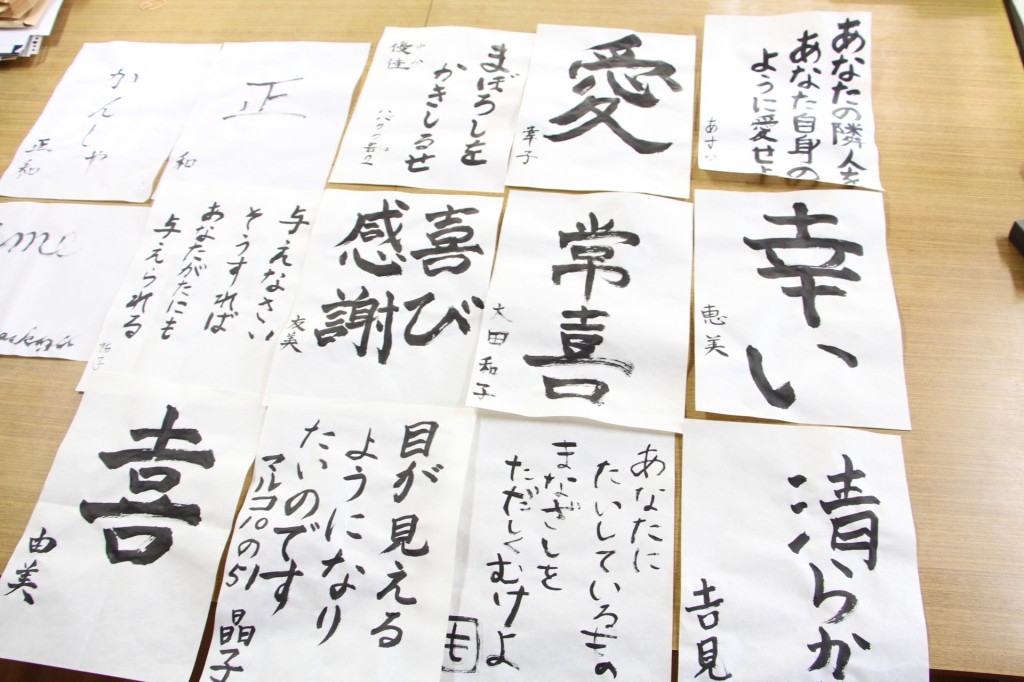 かんしゃ
正和
正
和
まぼろしを
かきしるせ
ハバクク書2
優佳
愛
幸子
あなたの隣人を
あなた自身の
ように愛せよ
あすか
与えなさい
そうすれば
あなたがたにも
与えられる
喜び
感謝
友美
常喜
大田和子
幸い
恵美
喜
由美
目が見える
ようになり
たいのです
マルコ10の51
晶子
あなたに
たいしているもの
まなざしを
ただしくむけよ
も
清らか
吉見